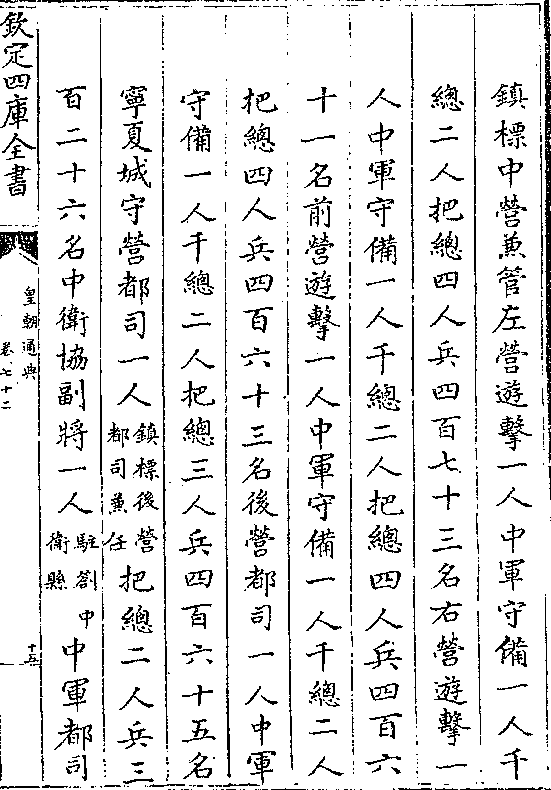 鎮標中營兼管左營遊擊一人中軍守備一人千
總二人把總四人兵四百七十三名右營遊擊一
人中軍守備一人千總二人把總四人兵四百六
十一名前營遊擊一人中軍守備一人千總二人
把總四人兵四百六十三名後營都司一人中軍
守備一人千總二人把總三人兵四百六十五名
寧夏城守營都司一人鎮標後營都司兼任把總二人兵三
百二十六名中衛協副將一人駐劄中衛縣中軍都司
欽定四庫全書
皇朝通典
卷七十二
十五